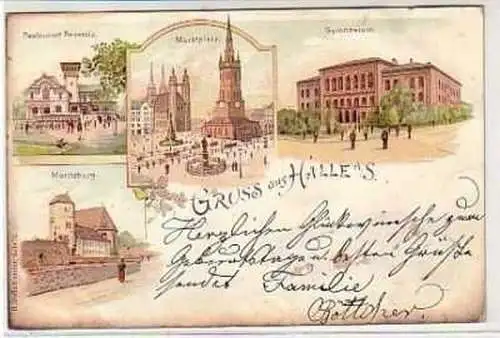 Restaurant
Marktplatz.
Gymnasium.
Moritzburg.
GRUSS aus HALLE a/S.
Herzlichen Glückwünsche zum
Geburtstage u. besten Grüße
sendet Familie
Böttcher.